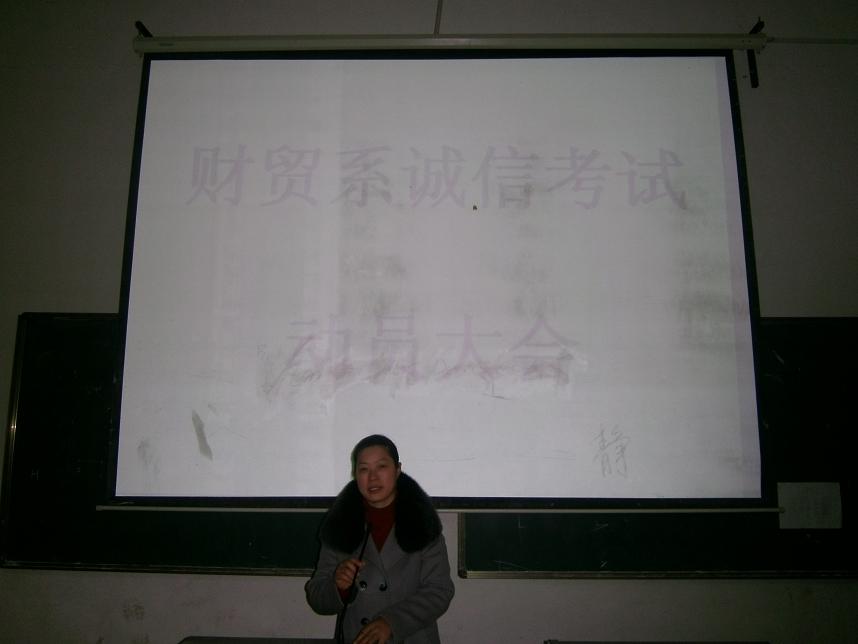 财贸系诚信考试
动员大会
静